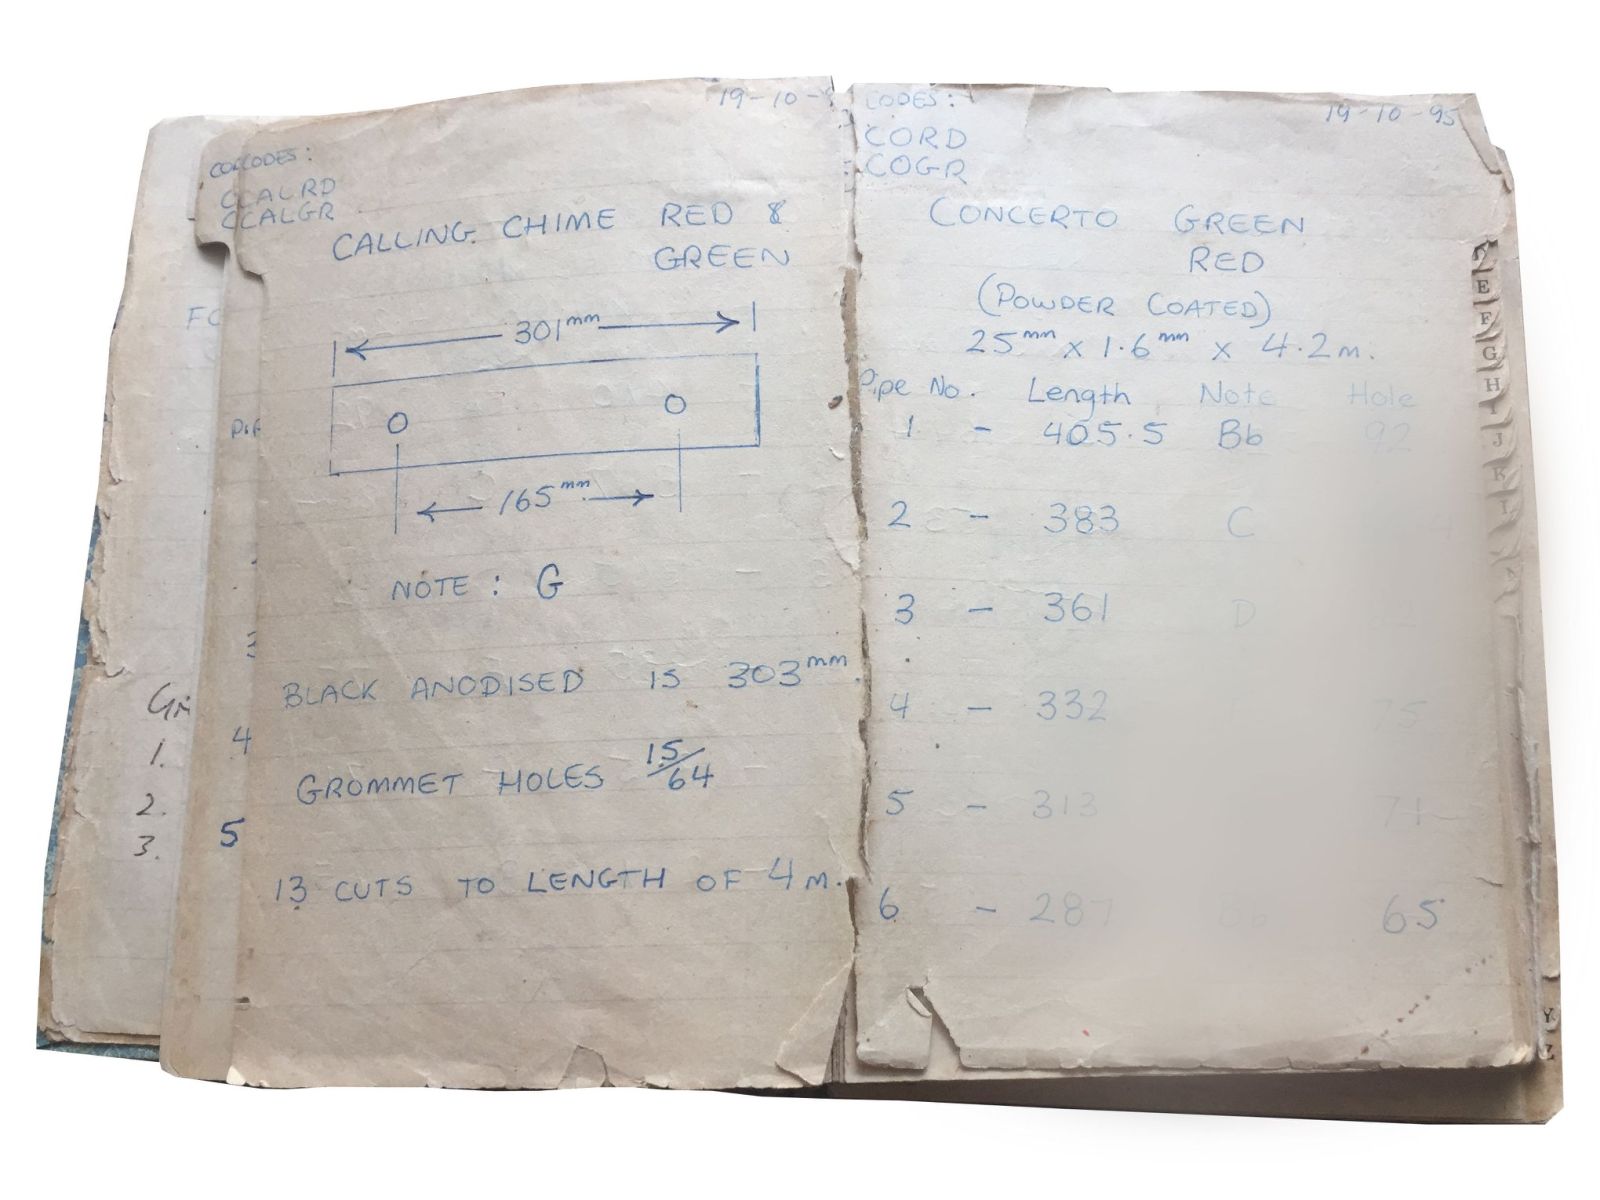 19-10-9
CODES:
CCALRD
CCALGR
CALLING CHIME RED &
GREEN
301mm
165mm
NOTE: G
BLACK ANODISED IS 303mm.
GROMMET HOLES 15/64
13 CUTS TO LENGTH OF 4m.
1.
2.
3.
4
5
CODES:
19-10-95
CORD
COGR
CONCERTO GREEN
RED
(POWDER COATED)
25mm x 1.6mm x 4.2m.
Pipe No. Length Note Hole
1 - 405.5 Bb 92
2 - 383 C
3 - 361 D
4 - 332 75
5 - 313 71
6 - 287 Bb 65
E
F
G
H
I
J
K
L
Y
Z